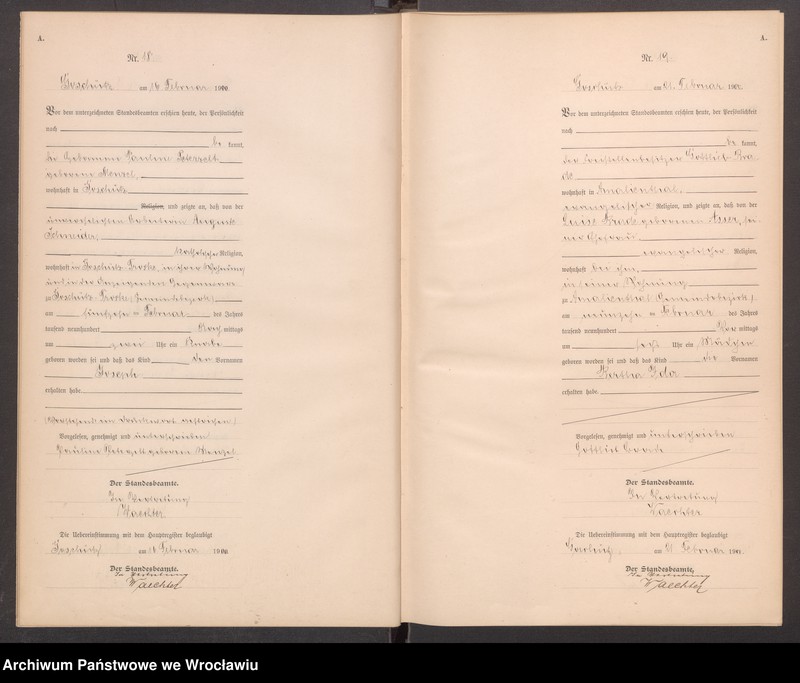 A.
Nr. 18
Goschütz am 16 Februar 1900
Vor dem unterzeichneten Standesbeamten erschien heute, der Persönlichkeit
nach
be kannt,
die Hebamme Pauline
geborene Menzel
wohnhaft in Goschütz
Religion, und zeigte an, daß von der
unverehelichten Arbeiterin Auguste
Schneider,
katholischer Religion,
wohnhaft in Goschütz-
zu Goschütz-
am fünfzehn ten Februar des Jahres
tausend neunhundert Nach mittags
um zwei Uhr ein Knabe
geboren worden sei und daß das Kind den Vornamen
Joseph
erhalten habe.
Vorgelesen, genehmigt und unterschrieben
Pauline geborene Menzel
Der Standesbeamte.
In Vertretung
Waechter
Die Uebereinstimmung mit dem Hauptregister beglaubigt
Goschütz am 16 Februar 1900
Der Standesbeamte.
In Vertretung
Waechter
A.
Nr. 19
Goschütz am 21. Februar 1900.
Vor dem unterzeichneten Standesbeamten erschien heute, der Persönlichkeit
nach
be kannt,
der Freistellenbesitzer Gottlieb
wohnhaft in Amalienthal,
evangelischer Religion, und zeigte an, daß von der
Luise geborenen sei-
ner Ehefrau
evangelischer Religion,
wohnhaft bei ihm,
in seiner Wohnung
zu Amalienthal Gemeindebezirk
am neunzehn ten Februar des Jahres
tausend neunhundert Vor mittags
um sechs Uhr ein Mädchen
geboren worden sei und daß das Kind die Vornamen
Bertha Ida
erhalten habe.
Vorgelesen, genehmigt und unterschrieben
Gottlieb
Der Standesbeamte.
In Vertretung
Waechter
Die Uebereinstimmung mit dem Hauptregister beglaubigt
Goschütz, am 21 Februar 1900.
Der Standesbeamte,
In Vertretung
Waechter
Archiwum Państwowe we Wrocławiu